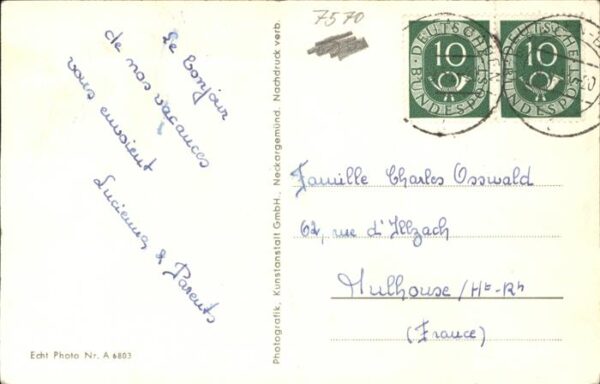 Le Bonjour
de nos vacances
vous envoient
Lucienne & Parents
Echt Photo Nr. A 6803
Photografik, Kunstanstalt GmbH., Neckargemünd. Nachdruck verb.
7570
10
DEUTSCHE
BUNDESPOST
10
DEUTSCHE
BUNDESPOST
Famille Charles Osswald
62, rue d'Illzach
Mulhouse / Ht-Rh
(France)